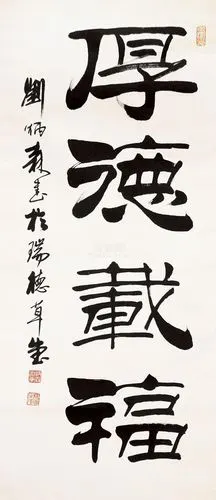 厚德載福
劉炳森書於瑞德草堂